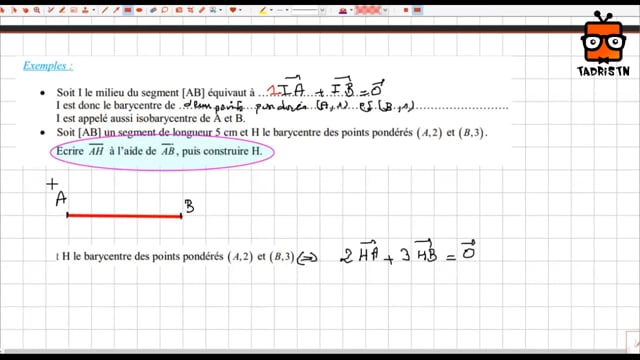 Exemples :
• Soit I le milieu du segment [AB] équivaut à ...1 IA + IB = 0
I est donc le barycentre de ..deux points pondérés (A,1) et (B,1)........
I est appelé aussi isobarycentre de A et B.
• Soit [AB] un segment de longueur 5 cm et H le barycentre des points pondérés (A,2) et (B,3).
Ecrire AH à l'aide de AB, puis construire H.
A
B
t H le barycentre des points pondérés (A,2) et (B,3) ⇔ 2 HA + 3 HB = 0
TADRISTN